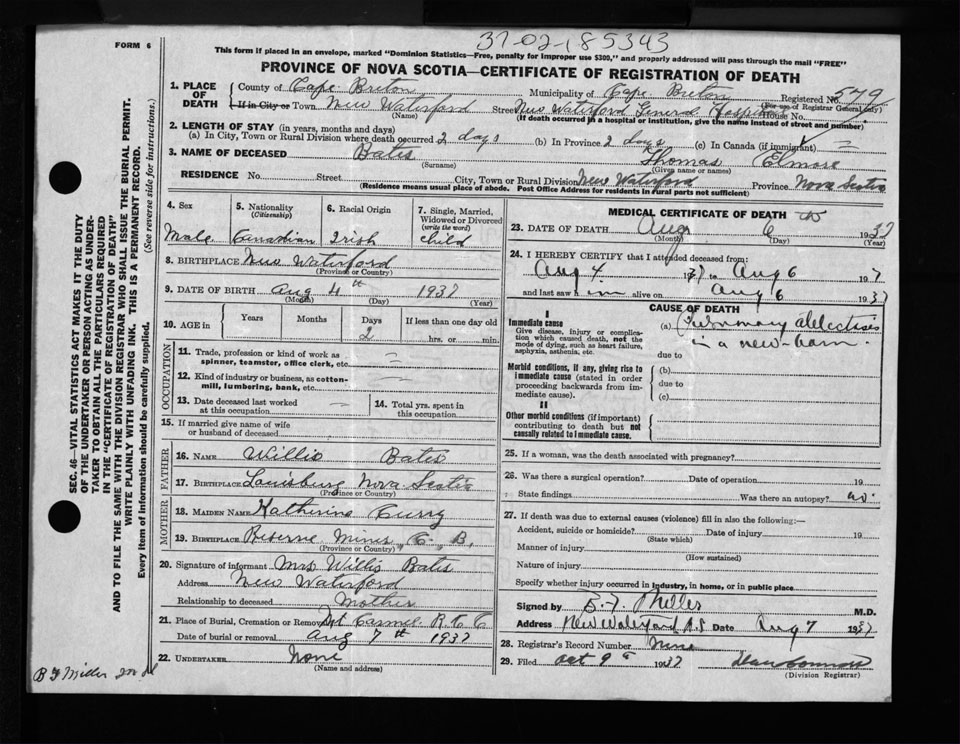 37-02-185343
FORM 6
This form if placed in an envelope, marked "Dominion Statistics—Free, penalty for improper use $300," and properly addressed will pass through the mail "FREE"
PROVINCE OF NOVA SCOTIA—CERTIFICATE OF REGISTRATION OF DEATH
1. PLACE OF DEATH
County of Cape Breton Municipality of Cape Breton Registered No. 579
(For use of Registrar General only)
If in City or Town New Waterford Street New Waterford General Hospital House No.
(Name) (If death occurred in a hospital or institution, give the name instead of street and number)
2. LENGTH OF STAY (in years, months and days)
(a) In City, Town or Rural Division where death occurred 2 days (b) In Province 2 days (c) In Canada (if immigrant) —
3. NAME OF DECEASED Bates Thomas Elmore
(Surname) (Given name or names)
RESIDENCE No. Street City, Town or Rural Division New Waterford Province Nova Scotia
(Residence means usual place of abode. Post Office Address for residents in rural parts not sufficient)
4. Sex 5. Nationality (Citizenship) 6. Racial Origin 7. Single, Married, Widowed or Divorced (write the word)
Male Canadian Irish child
8. BIRTHPLACE New Waterford
(Province or Country)
9. DATE OF BIRTH Aug 4th 1937
(Month) (Day) (Year)
10. AGE in Years Months Days If less than one day old
2 hrs. or min.
OCCUPATION
11. Trade, profession or kind of work as spinner, teamster, office clerk, etc. —
12. Kind of industry or business, as cotton-mill, lumbering, bank, etc. —
13. Date deceased last worked at this occupation —
14. Total yrs. spent in this occupation
15. If married give name of wife or husband of deceased
FATHER
16. NAME Willis Bates
17. BIRTHPLACE Louisburg Nova Scotia
(Province or Country)
MOTHER
18. MAIDEN NAME Katherine Curry
19. BIRTHPLACE Reserve Mines, C. B.
(Province or Country)
20. Signature of informant Mrs Willis Bates
Address New Waterford
Relationship to deceased Mother
21. Place of Burial, Cremation or Removal Mt Carmel R.C.C
Date of burial or removal Aug 7th 1937
22. UNDERTAKER None
(Name and address)
MEDICAL CERTIFICATE OF DEATH
23. DATE OF DEATH Aug 6 1937
(Month) (Day) (Year)
24. I HEREBY CERTIFY that I attended deceased from:
Aug 4 37 to Aug 6 1937
and last saw him alive on Aug 6 1937
CAUSE OF DEATH
I
Immediate cause
Give disease, injury or complication which caused death, not the mode of dying, such as heart failure, asphyxia, asthenia, etc.
(a) Pulmonary atelectisis
in a new-born.
due to
Morbid conditions, if any, giving rise to immediate cause (stated in order proceeding backwards from immediate cause).
(b)
due to
(c)
II
Other morbid conditions (if important) contributing to death but not causally related to immediate cause.
25. If a woman, was the death associated with pregnancy?
26. Was there a surgical operation? Date of operation 19
State findings Was there an autopsy? no.
27. If death was due to external causes (violence) fill in also the following:—
Accident, suicide or homicide? Date of injury 19
(State which)
Manner of injury
(How sustained)
Nature of injury
Specify whether injury occurred in industry, in home, or in public place
Signed by B. F. Miller M.D.
Address New Waterford N.S Date Aug 7 1937
28. Registrar's Record Number None
29. Filed Oct 9th 1937
(Division Registrar)
SEC. 46—VITAL STATISTICS ACT MAKES IT THE DUTY
OF THE UNDERTAKER OR PERSON ACTING AS UNDER-
TAKER TO OBTAIN ALL THE PARTICULARS REQUIRED
IN THE "CERTIFICATE OF REGISTRATION OF DEATH"
AND TO FILE THE SAME WITH THE DIVISION REGISTRAR WHO SHALL ISSUE THE BURIAL PERMIT.
WRITE PLAINLY WITH UNFADING INK. THIS IS A PERMANENT RECORD.
Every item of information should be carefully supplied. (See reverse side for instructions.)
B F Miller M D